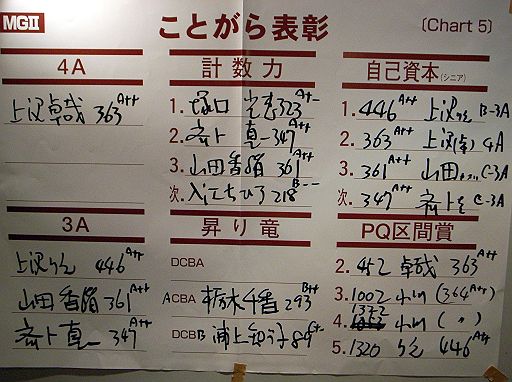 MGII
ことがら表彰
(Chart 5)
4A
上沢卓哉 363 A++
3A
446 A++
山田香 361 A++
真一 347 A++
計数力
1. 塚口 323 A+-
2. 真一 347 A++
3. 山田香 361 A++
次. 入江ちひろ 218 B--
昇り竜
DCBA
ACBA 栃木千香 293 B++
DCBB 浦上 89 C+
自己資本(シニア)
1. 446 A++ 上沢 B-3A
2. 363 A++ 上沢 4A
3. 361 A++ 山田 C-3A
次. 347 A++ C-3A
PQ区間賞
2. 452 卓哉 363 A++
3. 1002 小川 (364 A++)
4. 1372 小川 ( 〃 )
5. 1320 446 A++